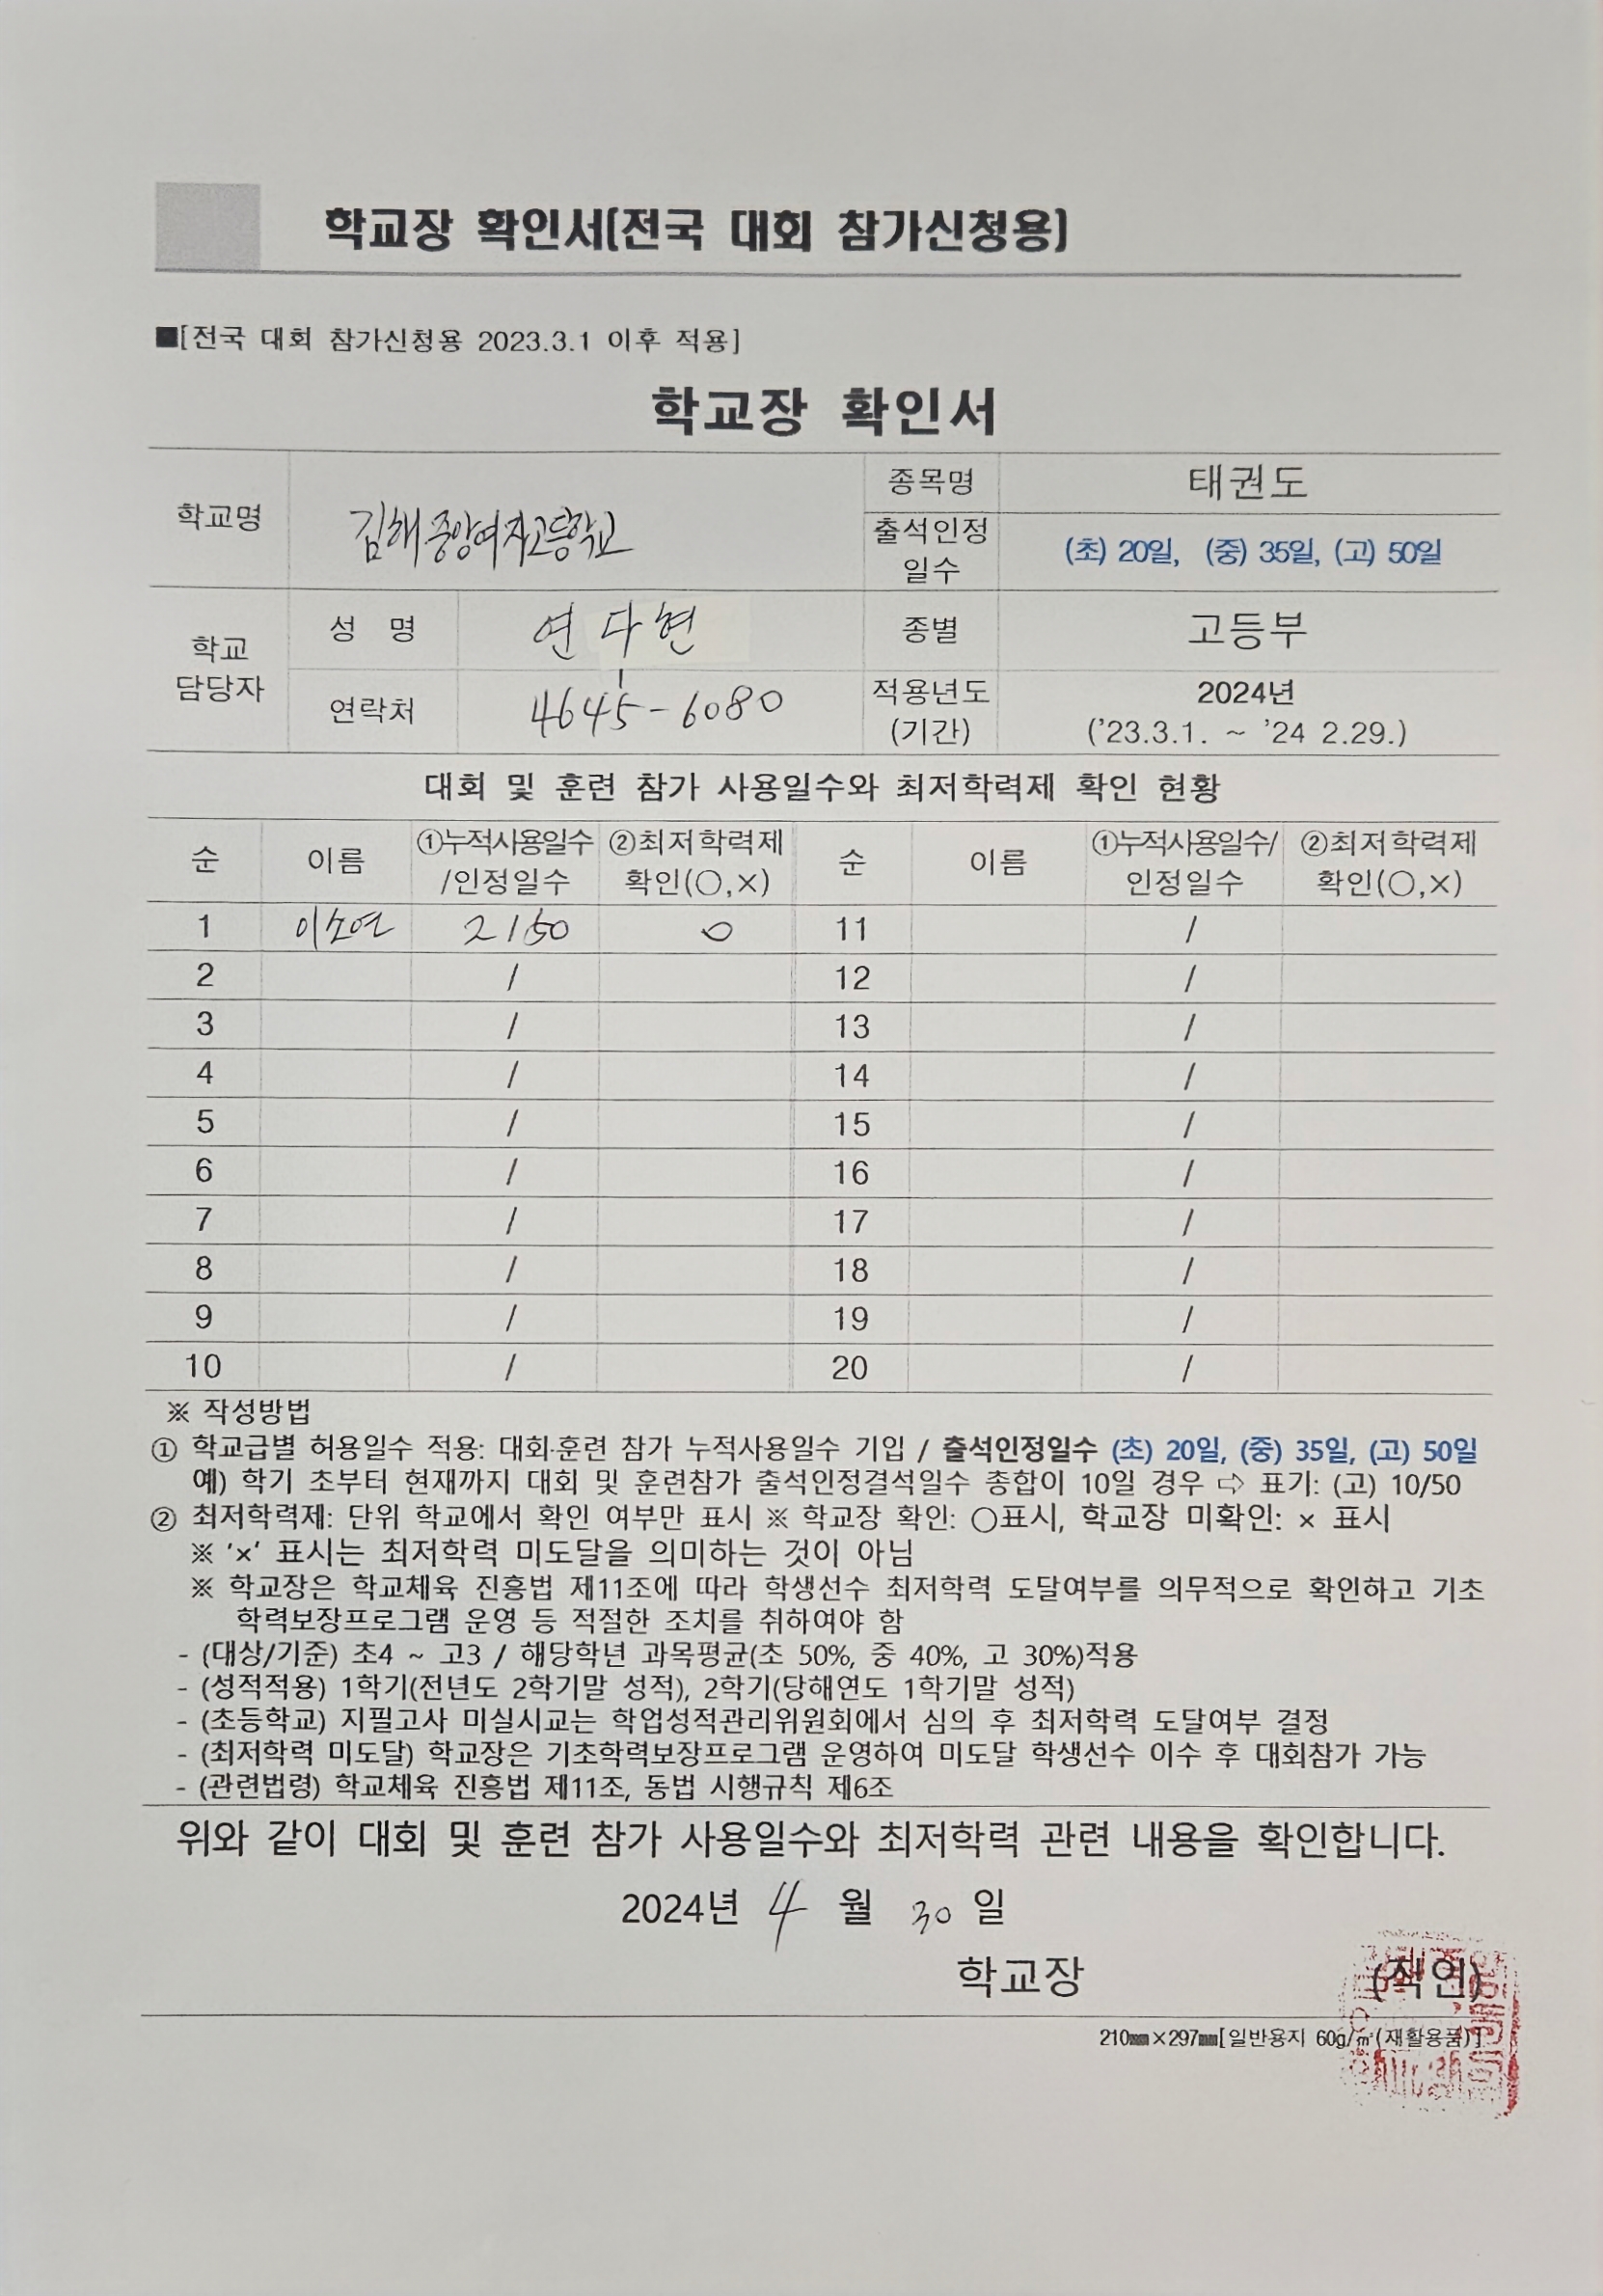 학교장 확인서[전국 대회 참가신청용]
■[전국 대회 참가신청용 2023.3.1 이후 적용]
학교장 확인서
학교명 김해중앙여자고등학교 종목명 태권도
출석인정 일수 (초) 20일, (중) 35일, (고) 50일
학교 담당자 성 명 연다현 종별 고등부
연락처 4645-6080 적용년도 (기간) 2024년 ('23.3.1. ~ '24 2.29.)
대회 및 훈련 참가 사용일수와 최저학력제 확인 현황
순 이름 ①누적사용일수 /인정일수 ②최저학력제 확인(○,×) 순 이름 ①누적사용일수/ 인정일수 ②최저학력제 확인(○,×)
1 이소연 2/50 ○ 11 /
2 / 12 /
3 / 13 /
4 / 14 /
5 / 15 /
6 / 16 /
7 / 17 /
8 / 18 /
9 / 19 /
10 / 20 /
※ 작성방법
① 학교급별 허용일수 적용: 대회·훈련 참가 누적사용일수 기입 / 출석인정일수 (초) 20일, (중) 35일, (고) 50일
예) 학기 초부터 현재까지 대회 및 훈련참가 출석인정결석일수 종합이 10일 경우 ⇨ 표기: (고) 10/50
② 최저학력제: 단위 학교에서 확인 여부만 표시 ※ 학교장 확인: ○표시, 학교장 미확인: × 표시
※ '×' 표시는 최저학력 미도달을 의미하는 것이 아님
※ 학교장은 학교체육 진흥법 제11조에 따라 학생선수 최저학력 도달여부를 의무적으로 확인하고 기초
학력보장프로그램 운영 등 적절한 조치를 취하여야 함
- (대상/기준) 초4 ~ 고3 / 해당학년 과목평균(초 50%, 중 40%, 고 30%)적용
- (성적적용) 1학기(전년도 2학기말 성적), 2학기(당해연도 1학기말 성적)
- (초등학교) 지필고사 미실시교는 학업성적관리위원회에서 심의 후 최저학력 도달여부 결정
- (최저학력 미도달) 학교장은 기초학력보장프로그램 운영하여 미도달 학생선수 이수 후 대회참가 가능
- (관련법령) 학교체육 진흥법 제11조, 동법 시행규칙 제6조
위와 같이 대회 및 훈련 참가 사용일수와 최저학력 관련 내용을 확인합니다.
2024년 4 월 30 일
학교장 (직인)
210㎜×297㎜[일반용지 60g/㎡(재활용품)]